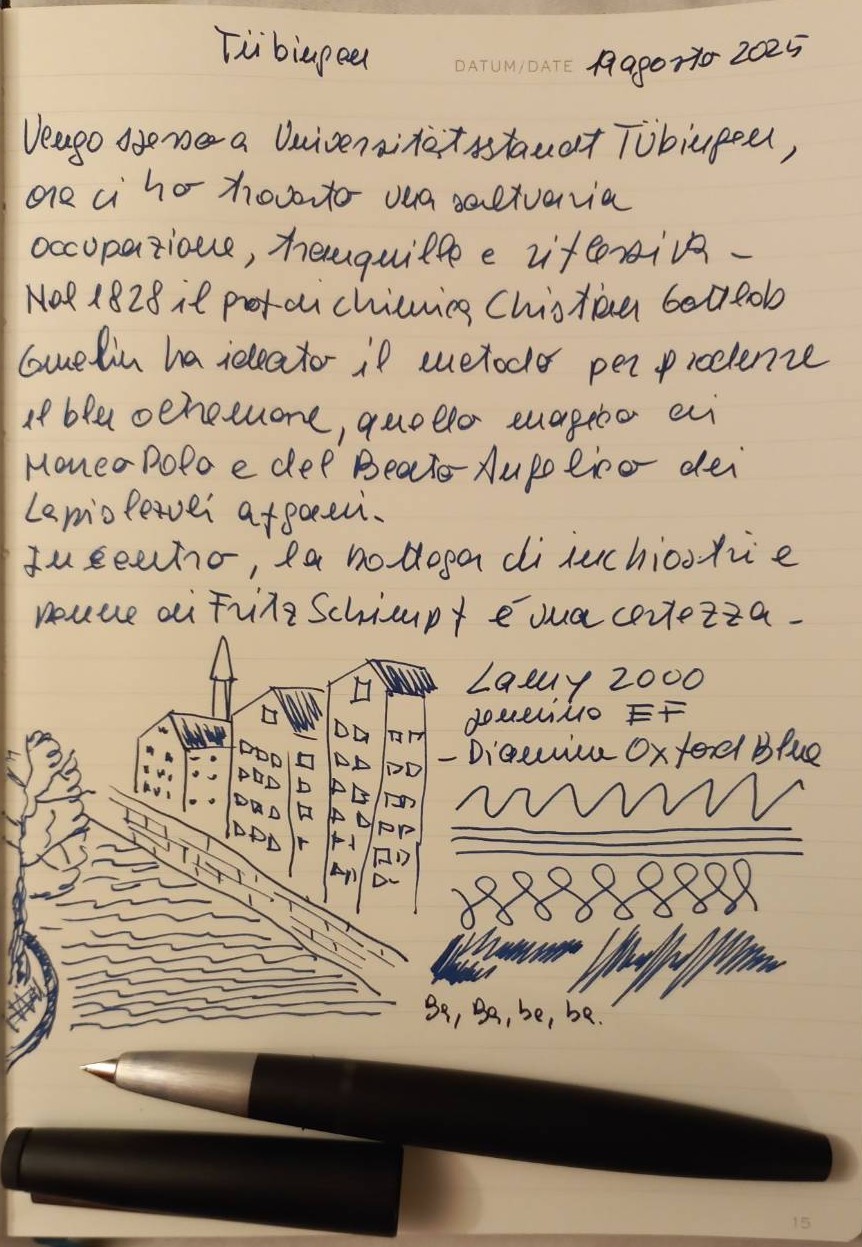 Tübingen
DATUM/DATE 19 agosto 2025
Vengo spesso a Universitätsstandt Tübingen,
ora ci ho trovato una saltuaria
occupazione, tranquilla e riflessiva -
Nel 1828 il prof di chimica Christian Gottlob
Gmelin ha ideato il metodo per produrre
il blu oltremare, quello magico di
Marco Polo e del Beato Angelico dei
Lapislazuli afgani.
In centro, la bottega di inchiostri e
penne di Fritz Schimpf é una certezza -
Lamy 2000
pennino EF
- Diamine Oxford Blue
Ba, Ba, ba, ba.
15